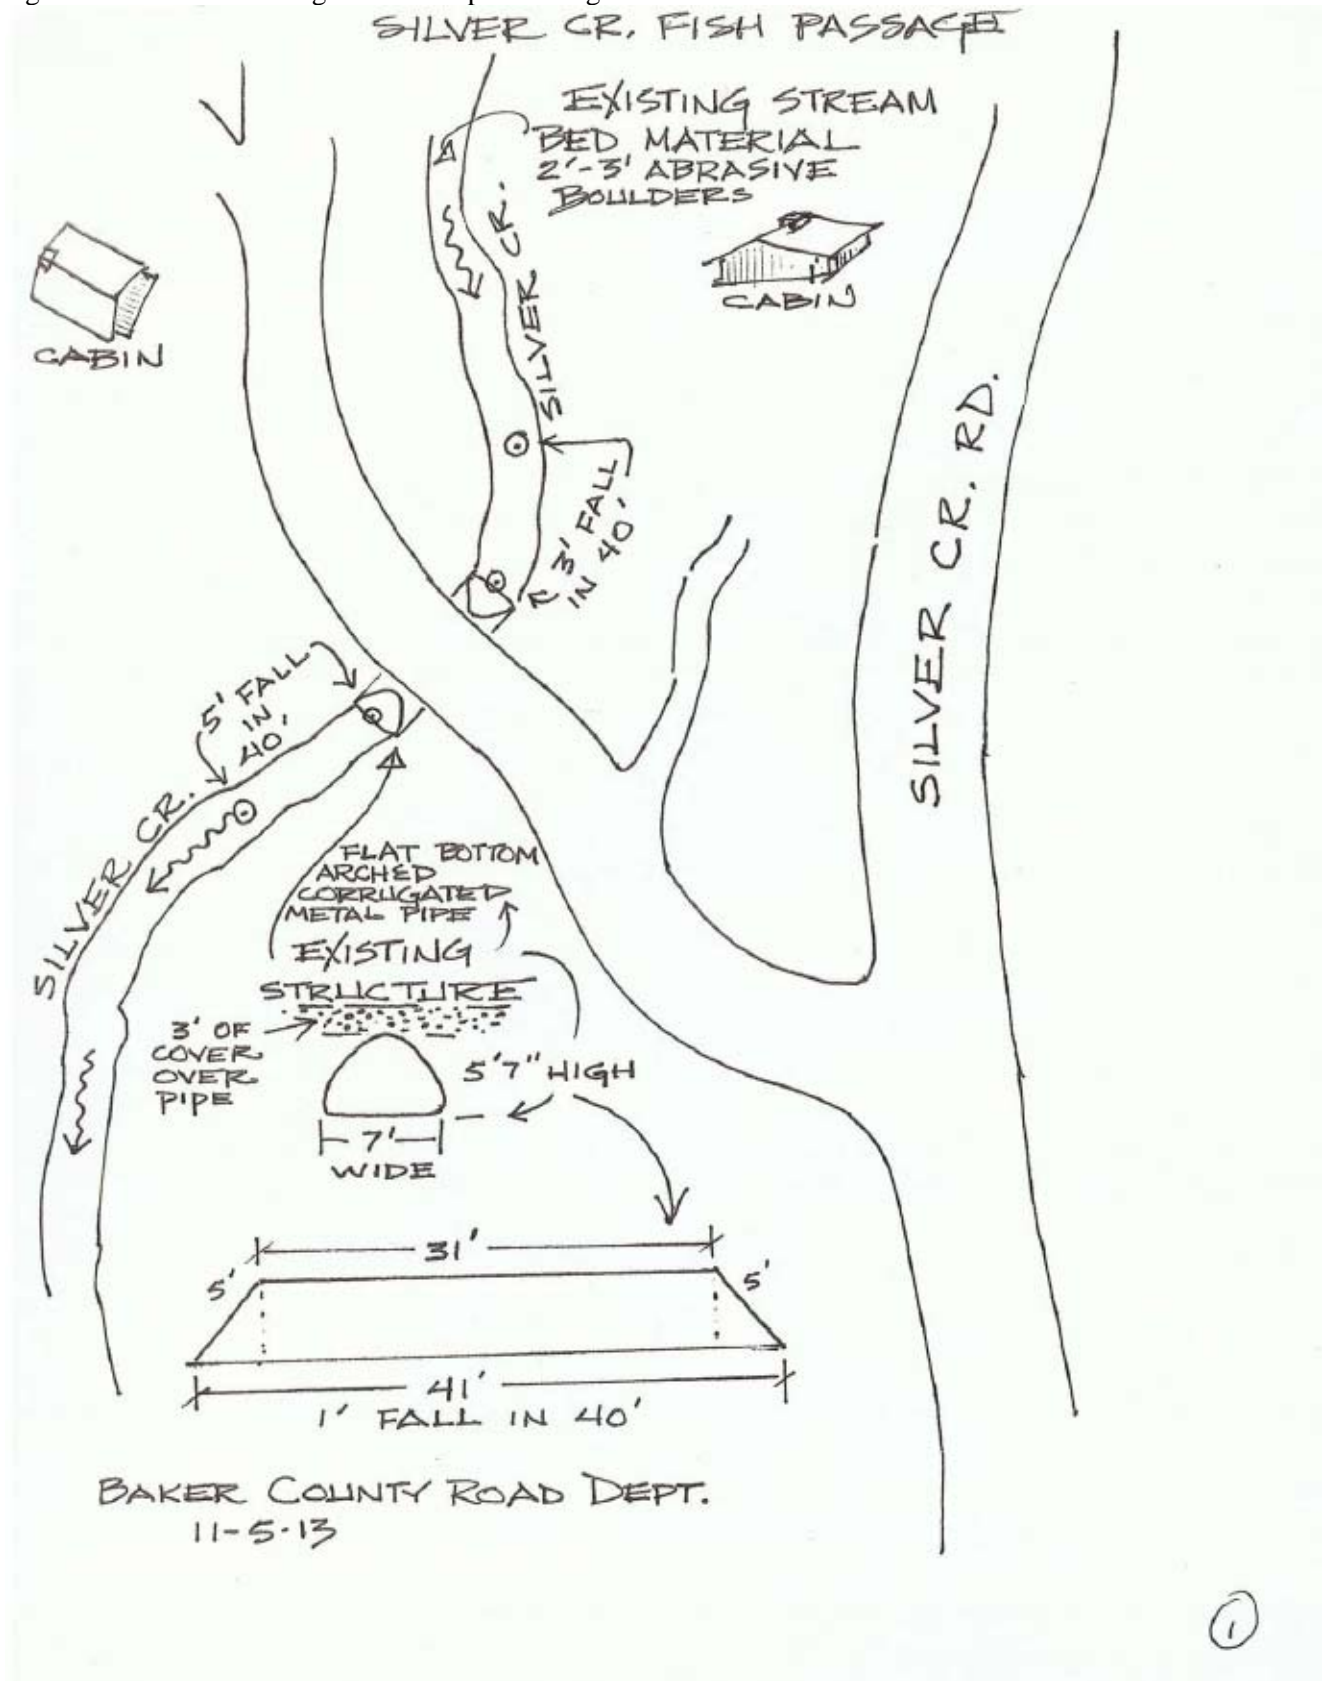 SILVER CR. FISH PASSAGE
EXISTING STREAM
BED MATERIAL
2'-3' ABRASIVE
BOULDERS
SILVER CR.
CABIN
CABIN
3' FALL
IN 40'
SILVER CR. RD.
5' FALL
IN
40'
SILVER CR.
FLAT BOTTOM
ARCHED
CORRUGATED
METAL PIPE
EXISTING
STRUCTURE
3' OF
COVER
OVER
PIPE
5'7" HIGH
7'
WIDE
31'
5'
5'
41'
1' FALL IN 40'
BAKER COUNTY ROAD DEPT.
11-5-13
1